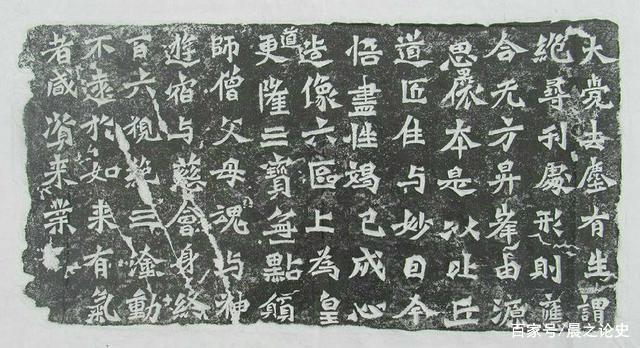 大覺去塵有生謂
絕尋刋處形則匯
合无方昇峯由源
思本是以止丘
道匠住与妙日今
悟盡性竭已成心
造像六區上為皇
道更隆三寶無點
師僧父母魂与神
遊宿与慈會身終
百六視絕三塗動
不遠於如来有氣
者咸資来業
百家号/晨之论史